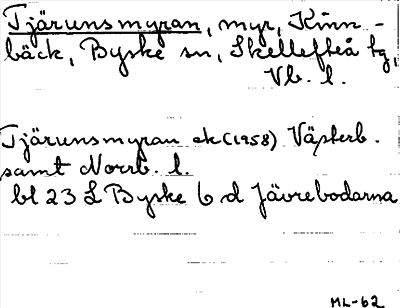 Tjärunsmyran, myr, Kinn-
bäck, Byske sn, Skellefteå tg,
Vb. l.
Tjärunsmyran ek (1958) Västerb.
samt Norrb. l.
bl 23 L Byske 6 d Jävrebodarna
ML-62